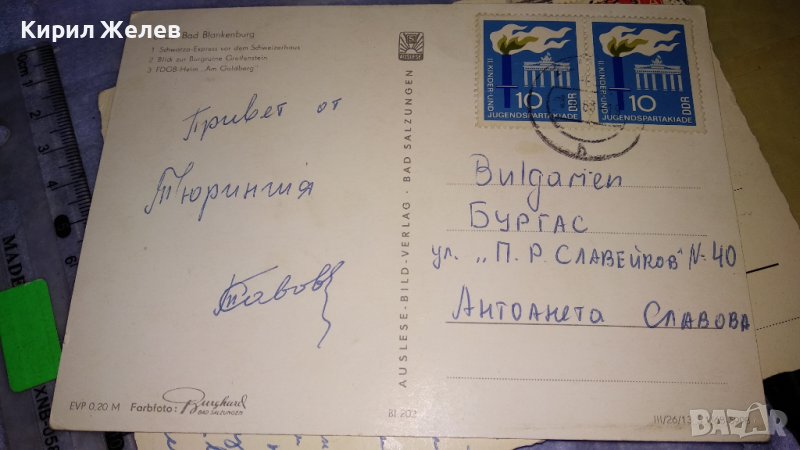 Кирил Желев
Bad Blankenburg
1 Schwarza-Express vor dem Schweizerhaus
2 Blick zur Burgruine Greifenstein
3 FDGB-Heim „Am Goldberg"
Привет от
Тюрингия
EVP 0,20 M Farbfoto: Burghard
BAD SALZUNGEN
AUSLESE-BILD-VERLAG · BAD SALZUNGEN
BI 203
II. KINDER-UND
JUGENDSPARTAKIADE
10
DDR
II. KINDER-UND
JUGENDSPARTAKIADE
10
DDR
Bulgarien
БУРГАС
ул. „П. Р. СЛАВЕЙКОВ" №40
АНТОАНЕТА СЛАВОВА
III/26/13
BAZAR
MADE
XNB-058